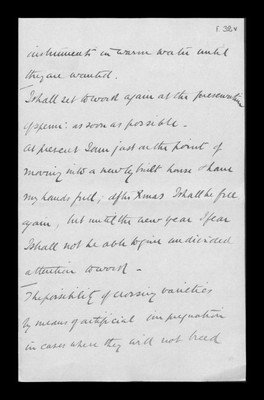 F. 32v
instruments in warm water until
they are wanted.
I shall set to work again at the preservation
of sperm: as soon as possible –
At present I am just on the point of
moving into a newly built house & have
my hands full; after Xmas I shall be free
again, but until the new year I fear
I shall not be able to give undivided
attention to work –
The possibility of crossing varieties
by means of artificial impregnation
in cases where they will not breed